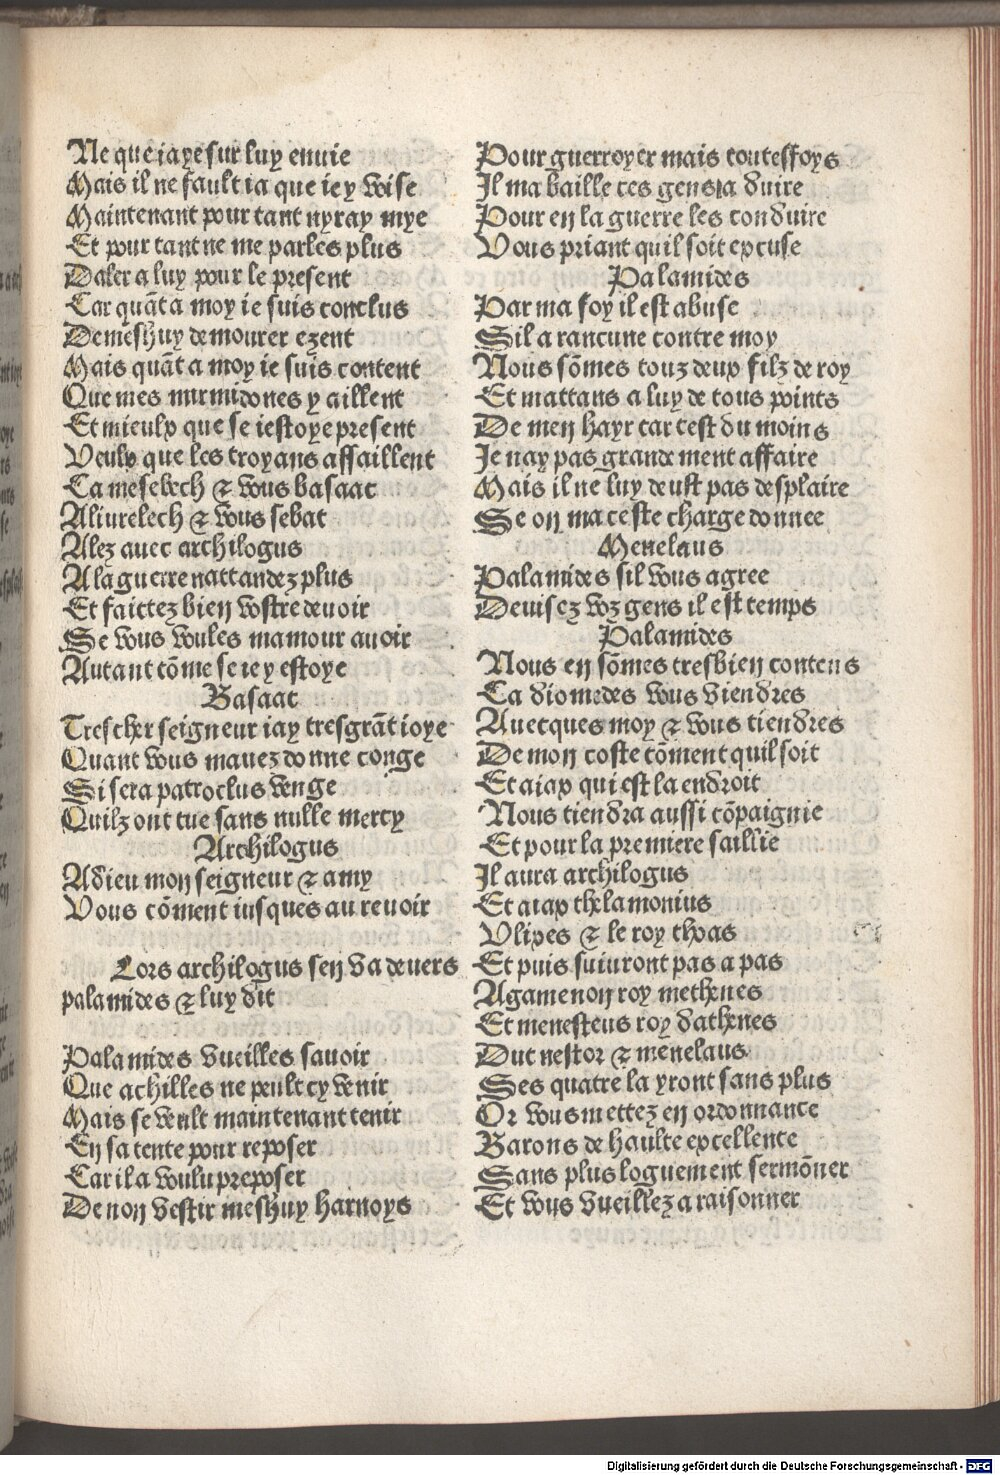 Ne que iaye sur luy enuie
Mais il ne fault ia que ie y voise
Maintenant pour tant nyray mye
Et pour tant ne me parles plus
Daler a luy pour le present
Car quãt a moy ie suis conclus
Demeshuy demourer ezent
Mais quãt a moy ie suis content
Que mes mirmidones y aillent
Et mieulx que se iestoye present
Veulx que les troyans assaillent
Ca meselech ⁊ vous basaac
Aliurelech ⁊ vous sebat
Alez auec archilogus
A la guerre nattandez plus
Et faictez bien vostre deuoir
Se vous voules mamour auoir
Autant cõme se ie y estoye
Basaac
Trescher seigneur iay tresgrãt ioye
Quant vous mauez donne conge
Si sera patroclus venge
Quilz ont tue sans nulle mercy
Archilogus
Adieu mon seigneur ⁊ amy
Vous cõment iusques au reuoir
Lors archilogus sen va deuers
palamides ⁊ luy dit
Palamides vueilles sauoir
Que achilles ne peult cy venir
Mais se veult maintenant tenir
En sa tente pour reposer
Car il a voulu preposer
De non vestir meshuy harnoys
Pour guerroyer mais toutesfoys
Il ma baille ces gens a duire
Pour en la guerre les conduire
Vous priant quil soit excuse
Palamides
Par ma foy il est abuse
Sil a rancune contre moy
Nous sõmes touz deux filz de roy
Et mattans a luy de tous points
De men hayr car cest du moins
Je nay pas grandement affaire
Mais il ne luy deust pas desplaire
Se on ma ceste charge donnee
Menelaus
Palamides sil vous agree
Deuisez voz gens il est temps
Palamides
Nous en sõmes tresbien contens
Ca diomedes vous viendres
Auecques moy ⁊ vous tiendres
De mon coste cõment quil soit
Et aiax qui est la endroit
Nous tiendra aussi cõpaignie
Et pour la premiere saillie
Il aura archilogus
Et aiax thelamonius
Vlixes ⁊ le roy thoas
Et puis suiuront pas a pas
Agamenon roy methenes
Et menesteus roy dathenes
Duc nestor ⁊ menelaus
Ses quatre la yront sans plus
Or vous mettez en ordonnance
Barons de haulte excellente
Sans plus loguement sermõner
Et vous vueillez a raisonner
Digitalisierung gefördert durch die Deutsche Forschungsgemeinschaft - DFG